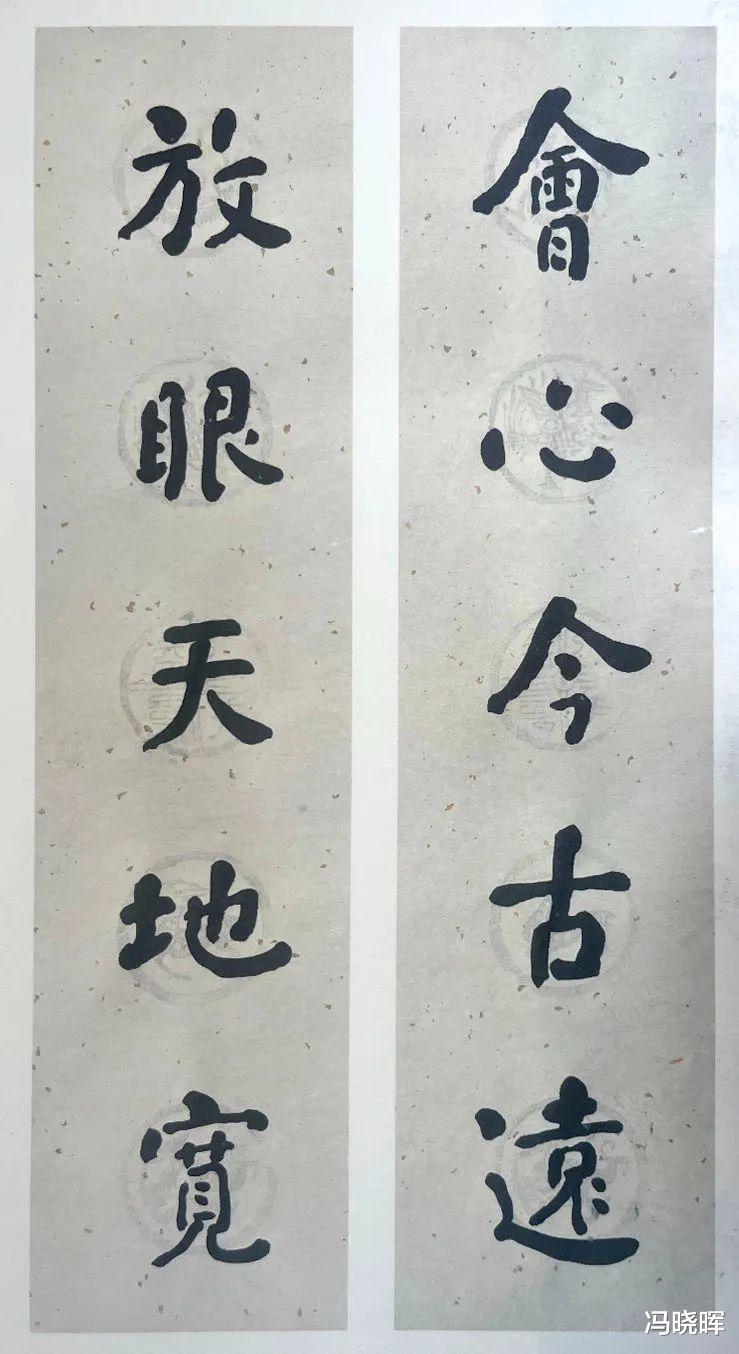 會心今古遠
放眼天地寬
冯晓晖